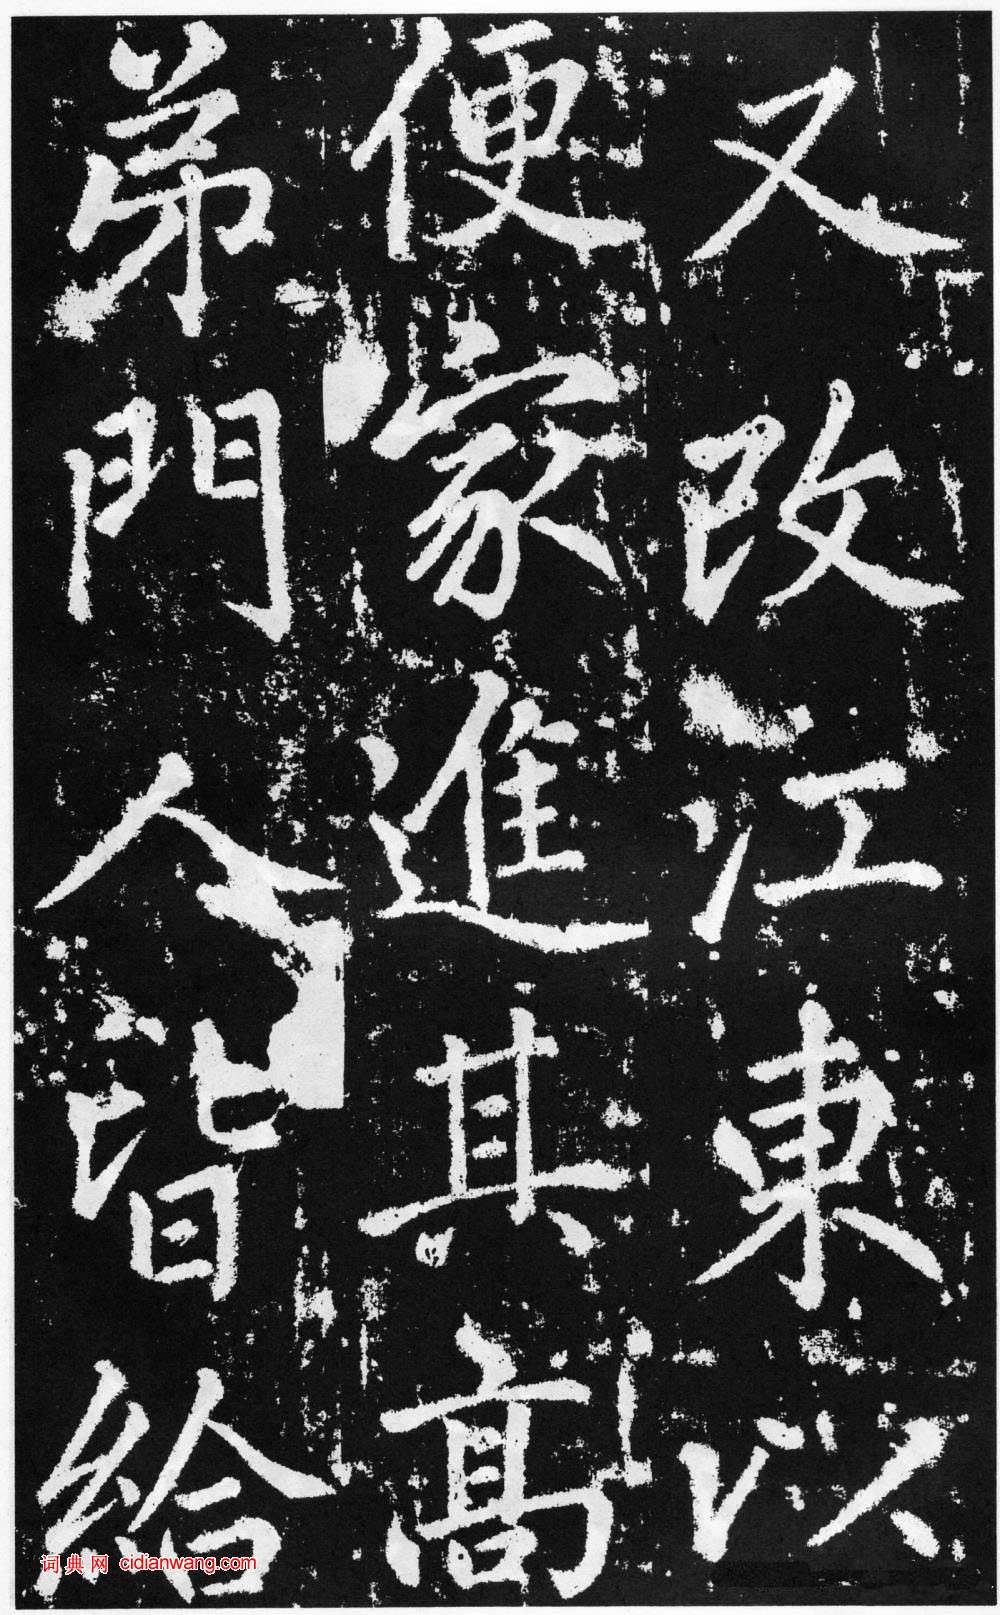 又改江東以
便家進其高
弟門人皆給
词典网 cidianwang.com